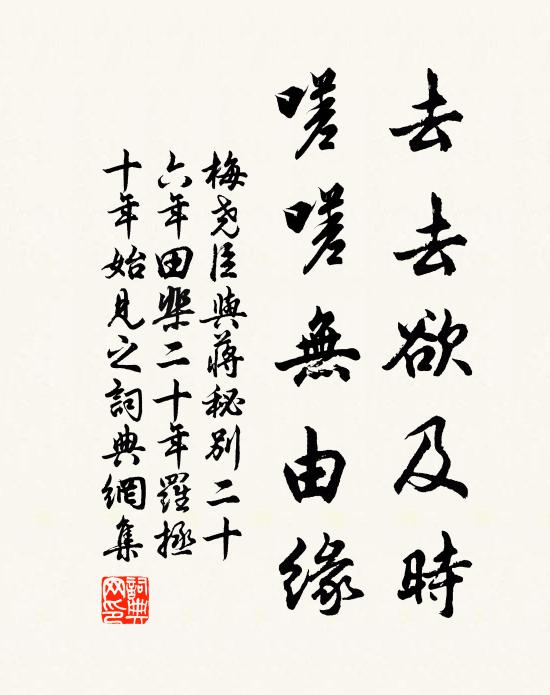 去去欲及時
嗟嗟無由緣
梅堯臣與蔣秘別二十
六年田棐二十年羅拯
十年始見之詞典網集
詞典網印